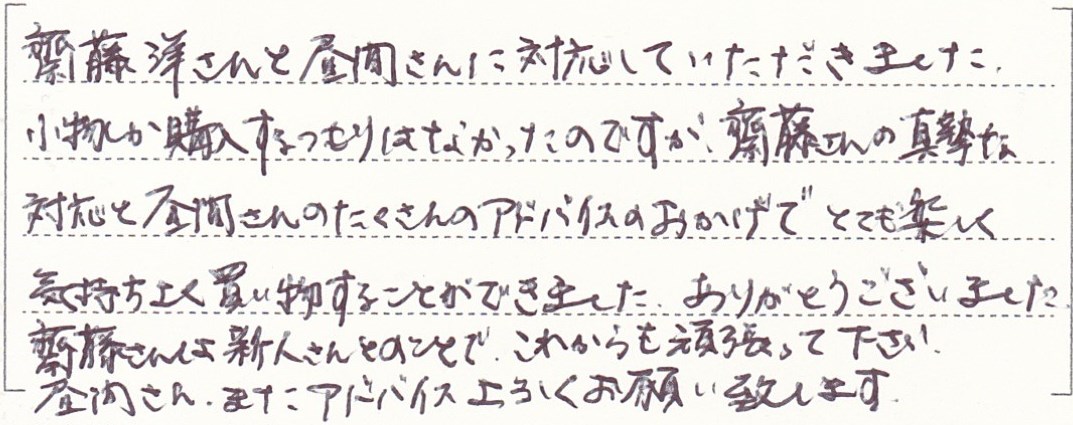 齋藤洋さんと昼間さんに対応していただきました.
小物しか購入するつもりはなかったのですが、齋藤さんの真摯な
対応と昼間さんのたくさんのアドバイスのおかげで とても楽しく
気持ちよく買い物することができました. ありがとうございました.
齋藤さんは新人さんとのことで、これからも頑張って下さい.
昼間さん、またアドバイスよろしくお願い致します.